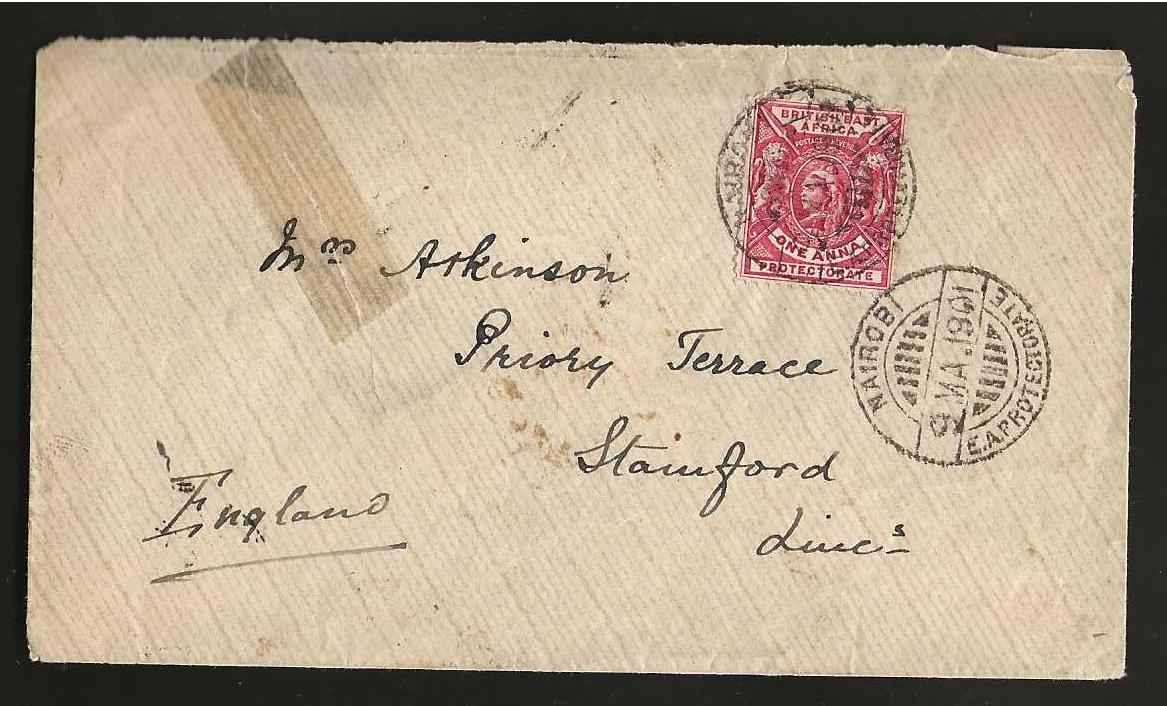 BRITISH EAST
AFRICA
POSTAGE & REVENUE
ONE ANNA
PROTECTORATE
NAIROBI
9 MA. 1901
E.A. PROTECTORATE
Mrs Arkinson
Priory Terrace
Stamford
Lincs
England